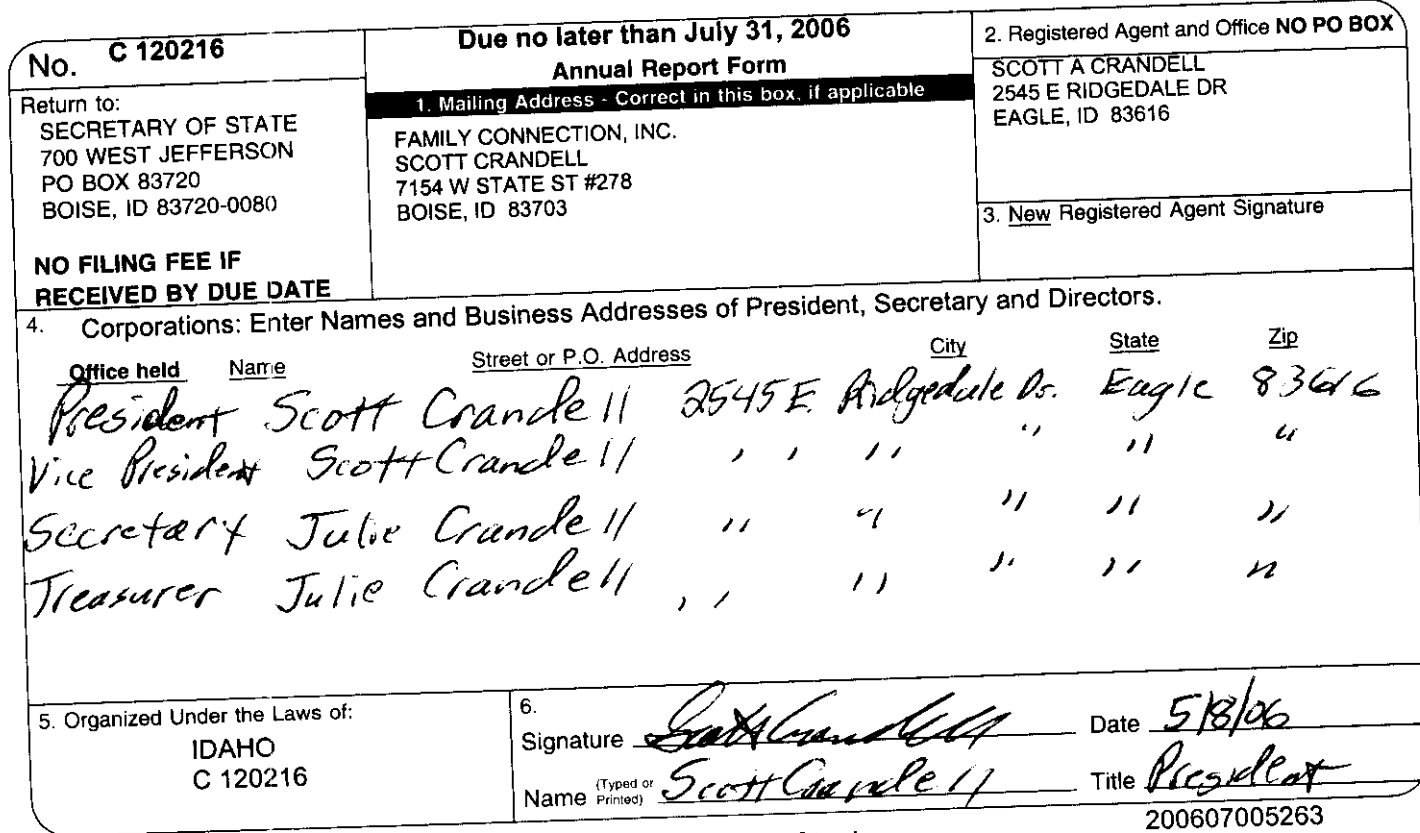 No. C 120216
Return to:
SECRETARY OF STATE
700 WEST JEFFERSON
PO BOX 83720
BOISE, ID 83720-0080
NO FILING FEE IF
RECEIVED BY DUE DATE
Due no later than July 31, 2006
Annual Report Form
1. Mailing Address - Correct in this box, if applicable
FAMILY CONNECTION, INC.
SCOTT CRANDELL
7154 W STATE ST #278
BOISE, ID 83703
2. Registered Agent and Office NO PO BOX
SCOTT A CRANDELL
2545 E RIDGEDALE DR
EAGLE, ID 83616
3. New Registered Agent Signature
4. Corporations: Enter Names and Business Addresses of President, Secretary and Directors.
Office held Name Street or P.O. Address City State Zip
President Scott Crandell 2545 E. Ridgedale Dr. Eagle 83616
Vice President Scott Crandell " " " " "
Secretary Julie Crandell " " " " "
Treasurer Julie Crandell " " " " "
5. Organized Under the Laws of:
IDAHO
C 120216
6.
Signature Scott Crandell Date 5/8/06
Name (Typed or Printed) Scott Crandell Title President
200607005263